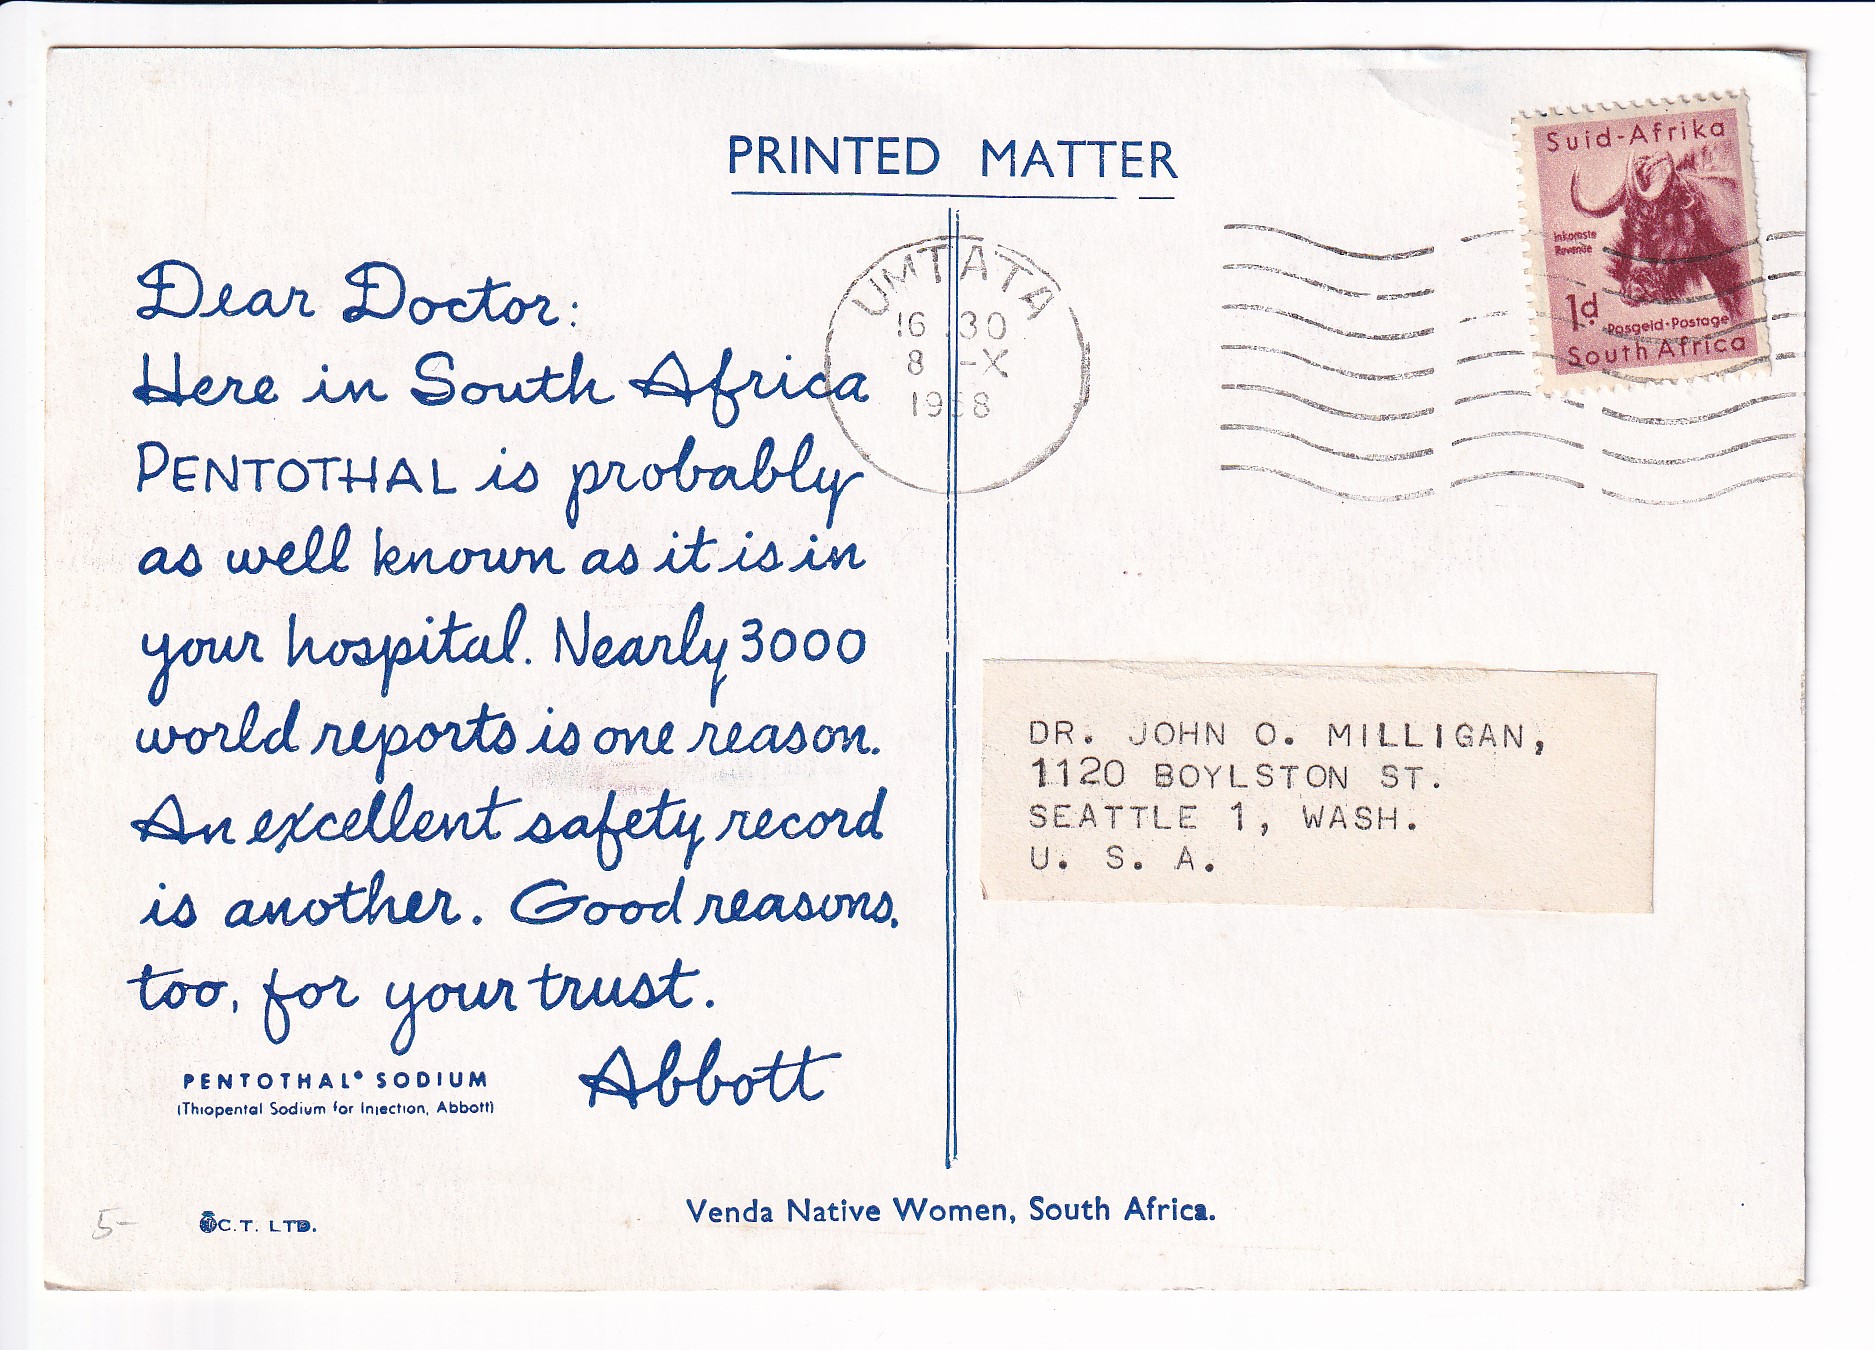 PRINTED MATTER
Suid-Afrika
Inkomste
Revenue
1d
Posgeld-Postage
South Africa
UMTATA
16 30
8 -X
1958
Dear Doctor:
Here in South Africa
PENTOTHAL is probably
as well known as it is in
your hospital. Nearly 3000
world reports is one reason.
An excellent safety record
is another. Good reasons,
too, for your trust.
Abbott
PENTOTHAL® SODIUM
(Thiopental Sodium for Injection, Abbott)
DR. JOHN O. MILLIGAN,
1120 BOYLSTON ST.
SEATTLE 1, WASH.
U. S. A.
Venda Native Women, South Africa.
5-
C.T. LTD.